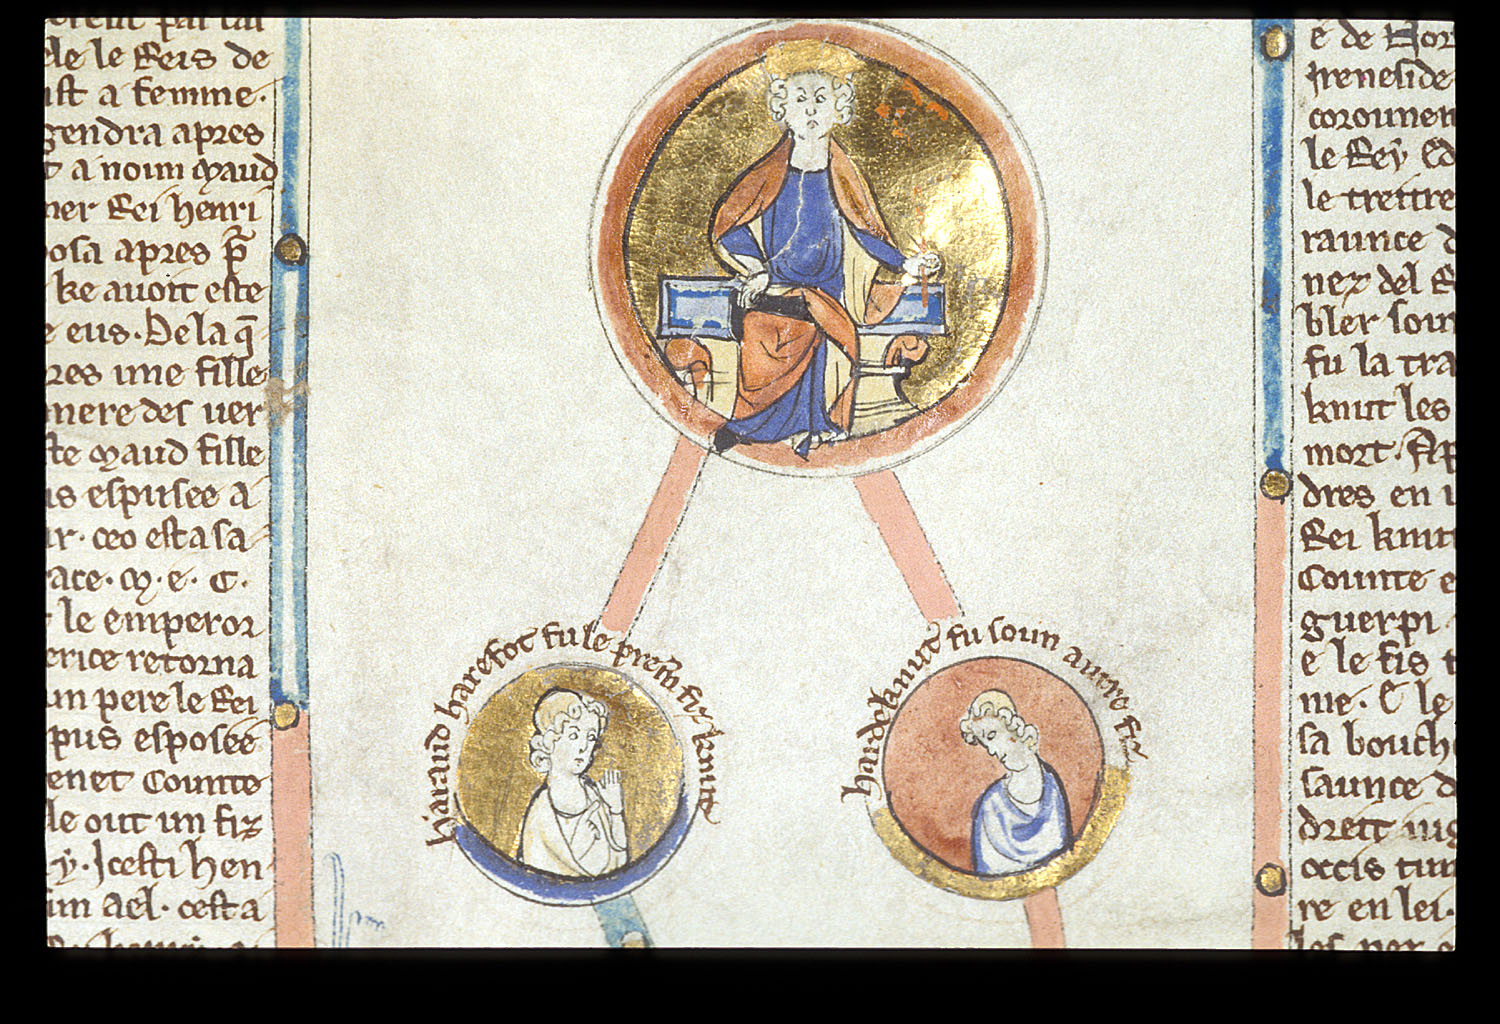 ele le Reis de
ist a femme.
gendra apres
t a noun Maud
mer Rei henri
posa apres p̄
ke auoit este
e eus. De la q̄
res une fille
mere des uer
ste Maud fille
is espusee a
ur. ceo est a sa
race. M. e. C.
le emperor
erice retorna
un pere le Rei
pus esposee
enet Counte
le out un fiz
y. Icesti hen
un ael. cest a
haraud harefot fu le prem̄ fiz knute
hardeknut fu soun autre fiz
e de Nor
coroumen
le Rey Ed
le treitre
raunce d
nez del R
bler soun
fu la tra
knut les
mort. Ap
dres en
Rei knut
Counte e
guerpi
e le fis
me. E le
sa bouche
saunce d
dreit
occis
re en lei.